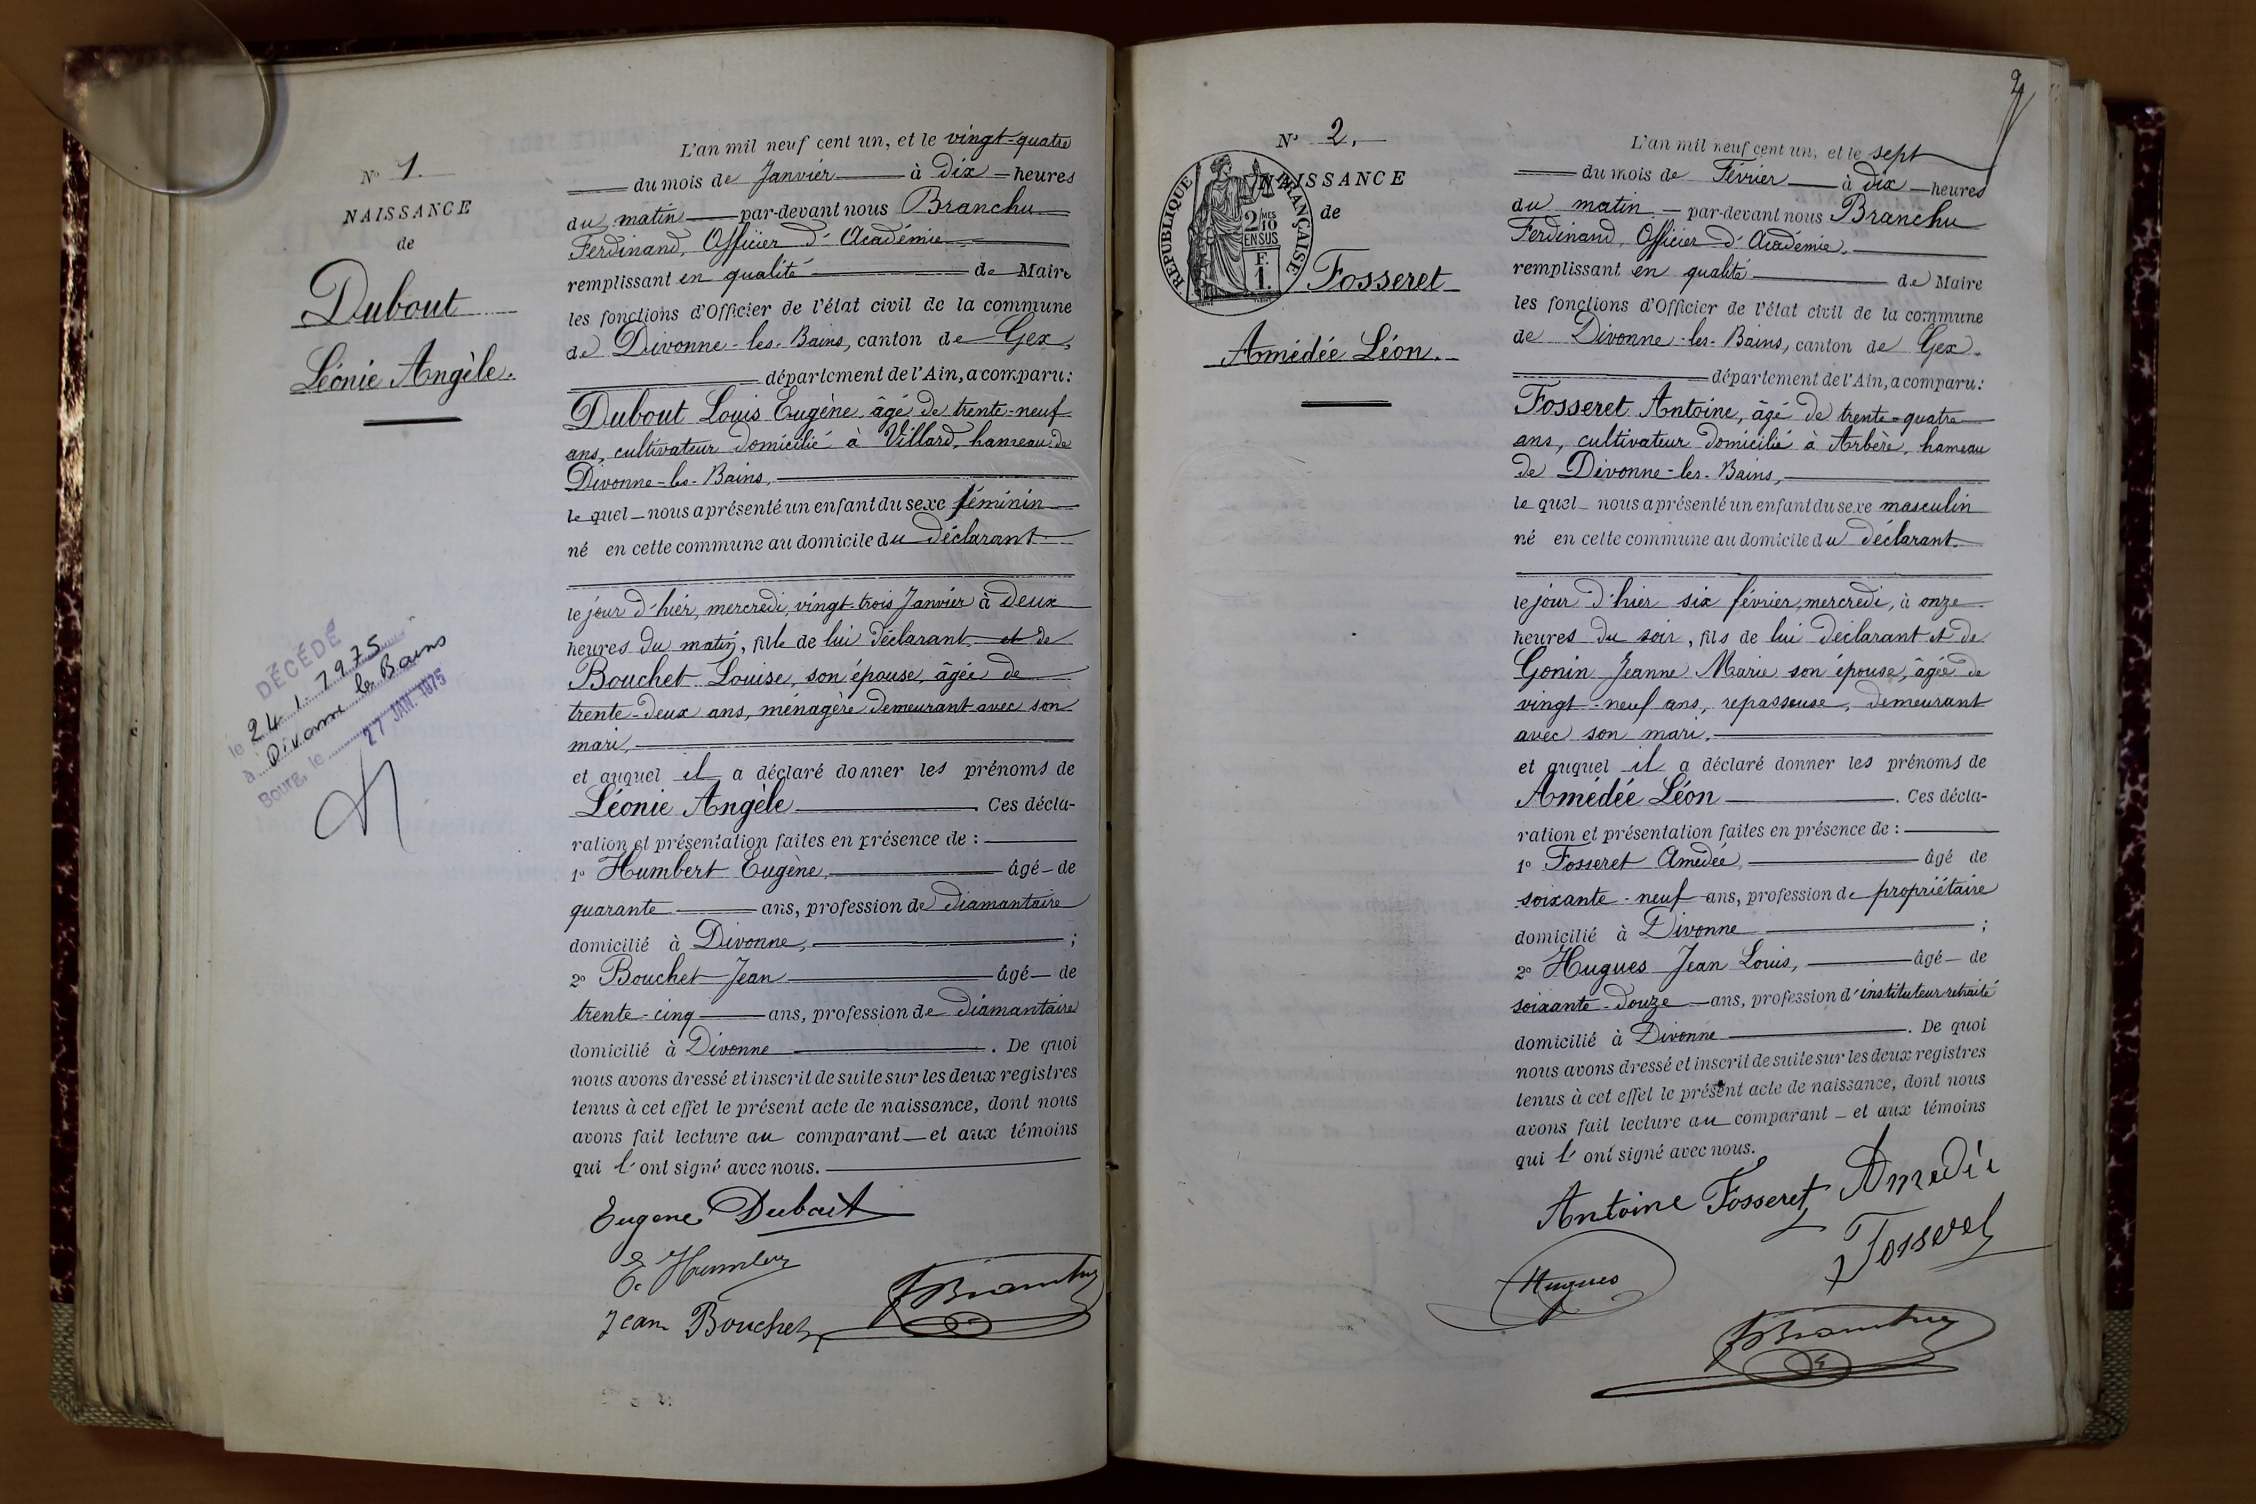 N° 1.
NAISSANCE
de
Dubout
Léonie Angèle.
DÉCÉDÉ
le 24.1.1975
à Divonne les Bains
Bourg, le 27 JAN. 1975
L'an mil neuf cent un, et le vingt-quatre
du mois de Janvier à dix heures
du matin par-devant nous Branchu
Ferdinand, Officier d'Académie
remplissant en qualité de Maire
les fonctions d'Officier de l'état civil de la commune
de Divonne-les-Bains, canton de Gex,
département de l'Ain, a comparu:
Dubout Louis Eugène âgé de trente-neuf
ans, cultivateur domicilié à Villard, hameau de
Divonne-les-Bains,
le quel nous a présenté un enfant du sexe féminin
né en cette commune au domicile du déclarant
le jour d'hier, mercredi, vingt-trois Janvier à deux
heures du matin, fille de lui déclarant et de
Bouchet Louise, son épouse, âgée de
trente-deux ans, ménagère demeurant avec son
mari,
et auquel il a déclaré donner les prénoms de
Léonie Angèle. Ces décla-
ration et présentation faites en présence de :
1° Humbert Eugène, âgé de
quarante ans, profession de diamantaire
domicilié à Divonne, ;
2° Bouchet Jean âgé de
trente-cinq ans, profession de diamantaire
domicilié à Divonne . De quoi
nous avons dressé et inscrit de suite sur les deux registres
tenus à cet effet le présent acte de naissance, dont nous
avons fait lecture au comparant et aux témoins
qui l'ont signé avec nous.
Eugene Dubout
E. Humbert
Jean Bouchet
FBranchu
2
N° 2.
NAISSANCE
de
RÉPUBLIQUE FRANÇAISE
2 MES
10
EN SUS
F.
1.
Fosseret
Amédée Léon.
L'an mil neuf cent un, et le sept
du mois de Février à dix heures
du matin par-devant nous Branchu
Ferdinand, Officier d'Académie.
remplissant en qualité de Maire
les fonctions d'Officier de l'état civil de la commune
de Divonne-les-Bains, canton de Gex.
département de l'Ain, a comparu:
Fosseret Antoine, âgé de trente-quatre
ans, cultivateur domicilié à Arbère, hameau
de Divonne-les-Bains,
le quel nous a présenté un enfant du sexe masculin
né en cette commune au domicile du déclarant.
le jour d'hier six février, mercredi, à onze
heures du soir, fils de lui déclarant et de
Gonin Jeanne Marie son épouse, âgée de
vingt-neuf ans, repasseuse, demeurant
avec son mari.
et auquel il a déclaré donner les prénoms de
Amédée Léon . Ces décla-
ration et présentation faites en présence de :
1° Fosseret Amédée, âgé de
soixante-neuf ans, profession de propriétaire
domicilié à Divonne ;
2° Hugues Jean Louis, âgé de
soixante-douze ans, profession d'instituteur retraité
domicilié à Divonne . De quoi
nous avons dressé et inscrit de suite sur les deux registres
tenus à cet effet le présent acte de naissance, dont nous
avons fait lecture au comparant et aux témoins
qui l'ont signé avec nous.
Antoine Fosseret Amedée
Fosseret
Hugues
FBranchu